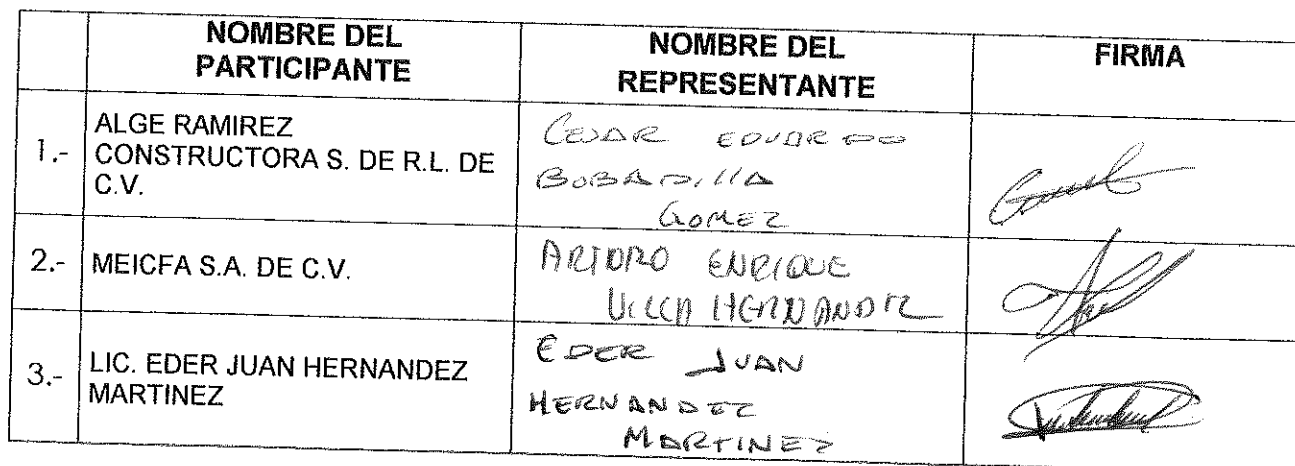 NOMBRE DEL
PARTICIPANTE
NOMBRE DEL
REPRESENTANTE
FIRMA
1.-
ALGE RAMIREZ
CONSTRUCTORA S. DE R.L. DE
C.V.
CESAR EDUARDO
BOBADILLA
GOMEZ
2.-
MEICFA S.A. DE C.V.
ARTURO ENRIQUE
VILLA HERNANDEZ
3.-
LIC. EDER JUAN HERNANDEZ
MARTINEZ
EDER JUAN
HERNANDEZ
MARTINEZ